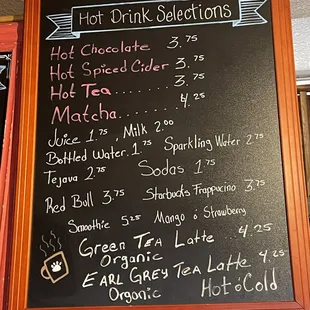 Hot Drink Selections
Hot Chocolate 3.75
Hot Spiced Cider 3.75
Hot Tea....... 3.75
Matcha....... 4.25
Juice 1.75, Milk 2.00
Bottled Water 1.75 Sparkling Water 2.75
Tejava 2.75 Sodas 1.75
Red Bull 3.75 Starbucks Frappucino 3.75
Smoothie 5.25 Mango & Strawberry
Green TEA Latte 4.25
Organic
EARL GREY TEA Latte 4.25
Organic Hot & Cold